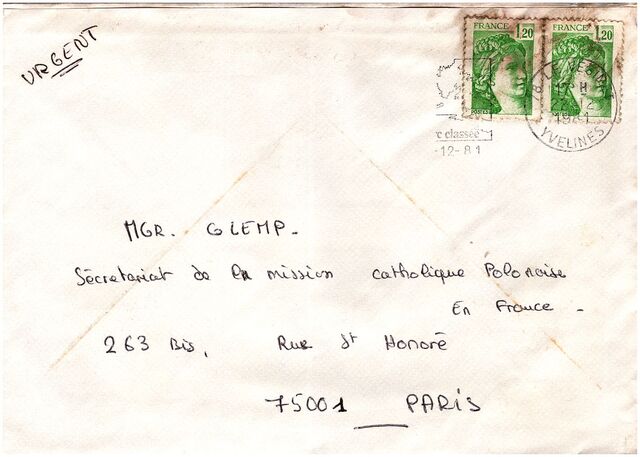 URGENT
FRANCE 1,20
FRANCE 1,20
YVELINES
1981
-12-81
MGR. GLEMP-
Sécretariat de la mission catholique Polonaise
En France -
263 Bis, Rue St Honoré
75001 PARIS